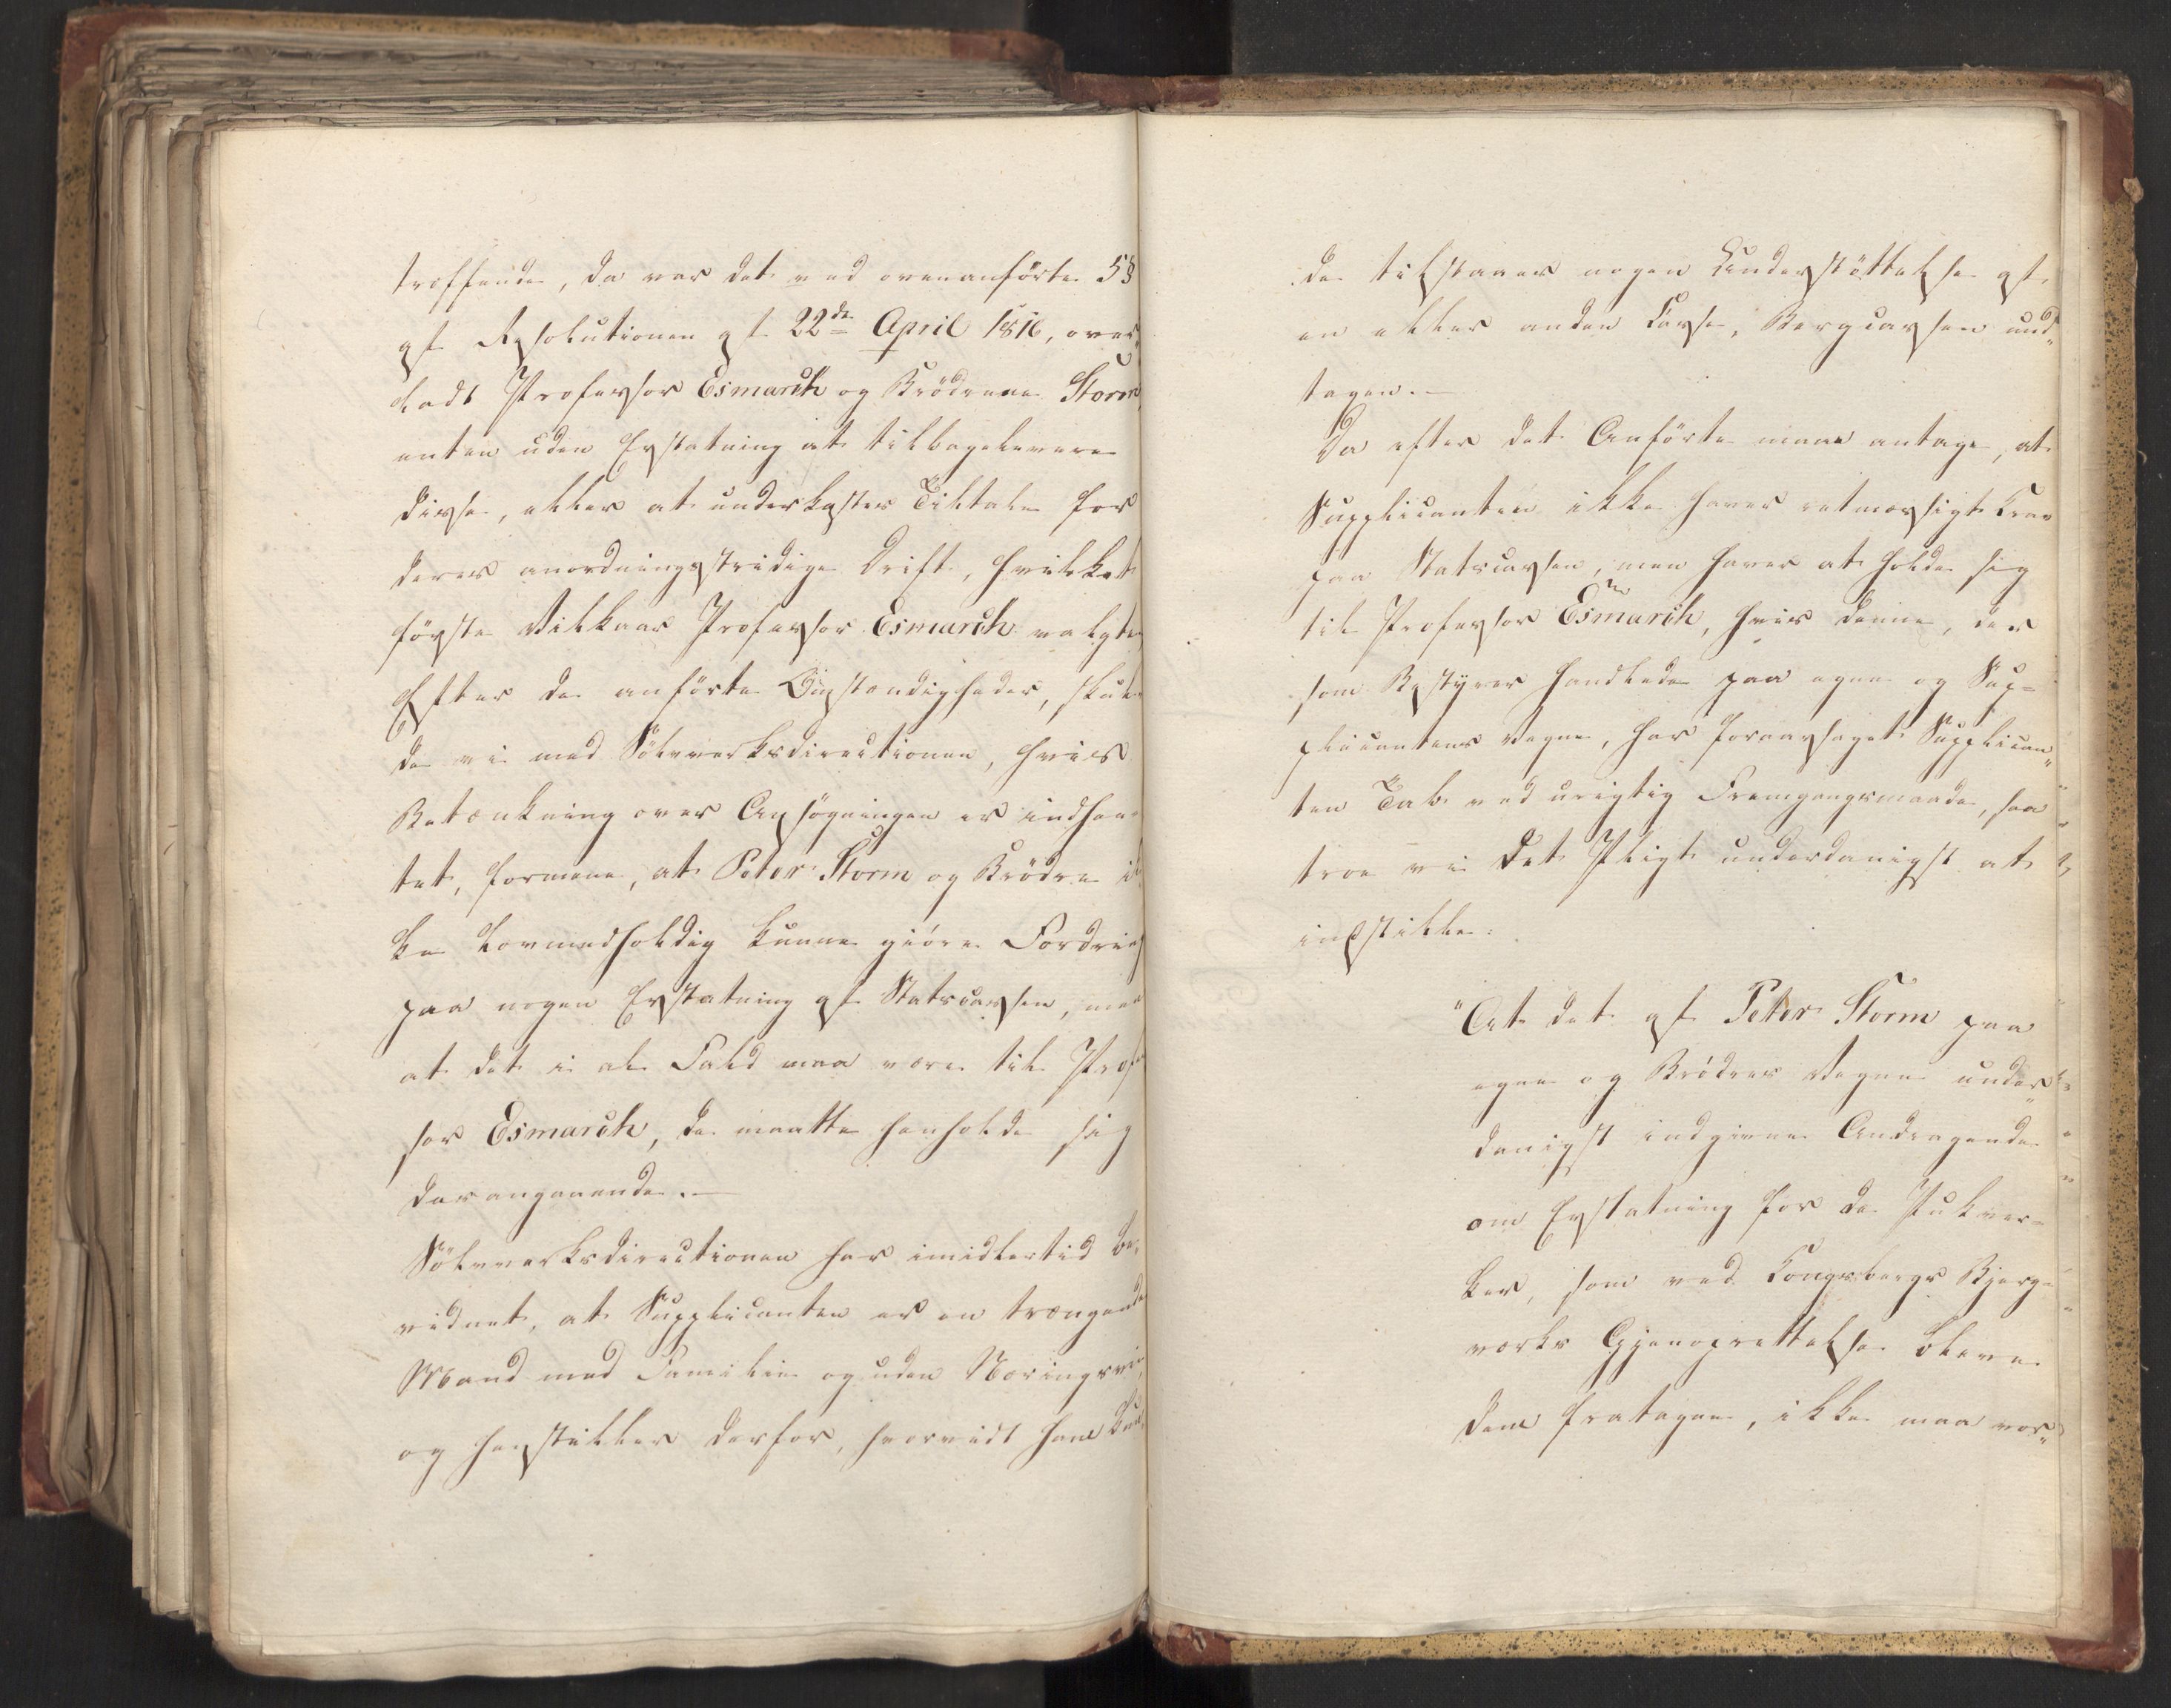 træffende, da var det ved ovenanførte 5 §
af Resolutionen af 22de April 1816, over„
ladt Professor Esmarch og Brödrene Storm,
enten uden Erstatning at tilbagelevere
disse, eller at underkastes Tiltale for
deres anordningsstridige Drift, hvilket
første Vilkaar Professor Esmarch valgte
Efter de anførte Omstændigheder, skul„
de vi med Sölvverksdirectionen, hvis
Betænkning over Ansøgningen er indhen„
tet, formene, at Peter Storm og Brödre ik„
ke lovmedholdig kunne giöre Fordring
paa nogen Erstatning af Statscassen, men
at det i al Fald maa være til Profes
sor Esmarch, de maatte henholde sig
derangaaende.—
Sölvverksdirectionen har imidlertid be„
vidnet, at Supplicanten er en trængende
Mand med Familie og uden Næringsvei,
og henstiller derfor, hvorvidt ham kun„
de tilstaaes nogen Understöttelse af
en eller anden Casse, Bergcassen und„
tagen.—
Da efter det Anførte maae antages, at
Supplicanten ikke haver retmæssigt Krav
paa Statscassen, men haver at holde sig
til Professor Esmarch, hvis denne, der
som Bestyrer handlede paa egne og Sup=
plicantens Vegne, har foraarsaget Supplican„
ten Tab ved urigtig Fremgangsmaade, saa
troe vi det Pligt underdanigst at
indstille:
"At det af Peter Storm paa
egne og Brödres Vegne under„
danigst indgivne Andragende
om Erstatning for de Pukver=
ker, som ved Kongsbergs Bjerg=
værks Gjenoprettelse bleve
dem fratagne, ikke maa vor„